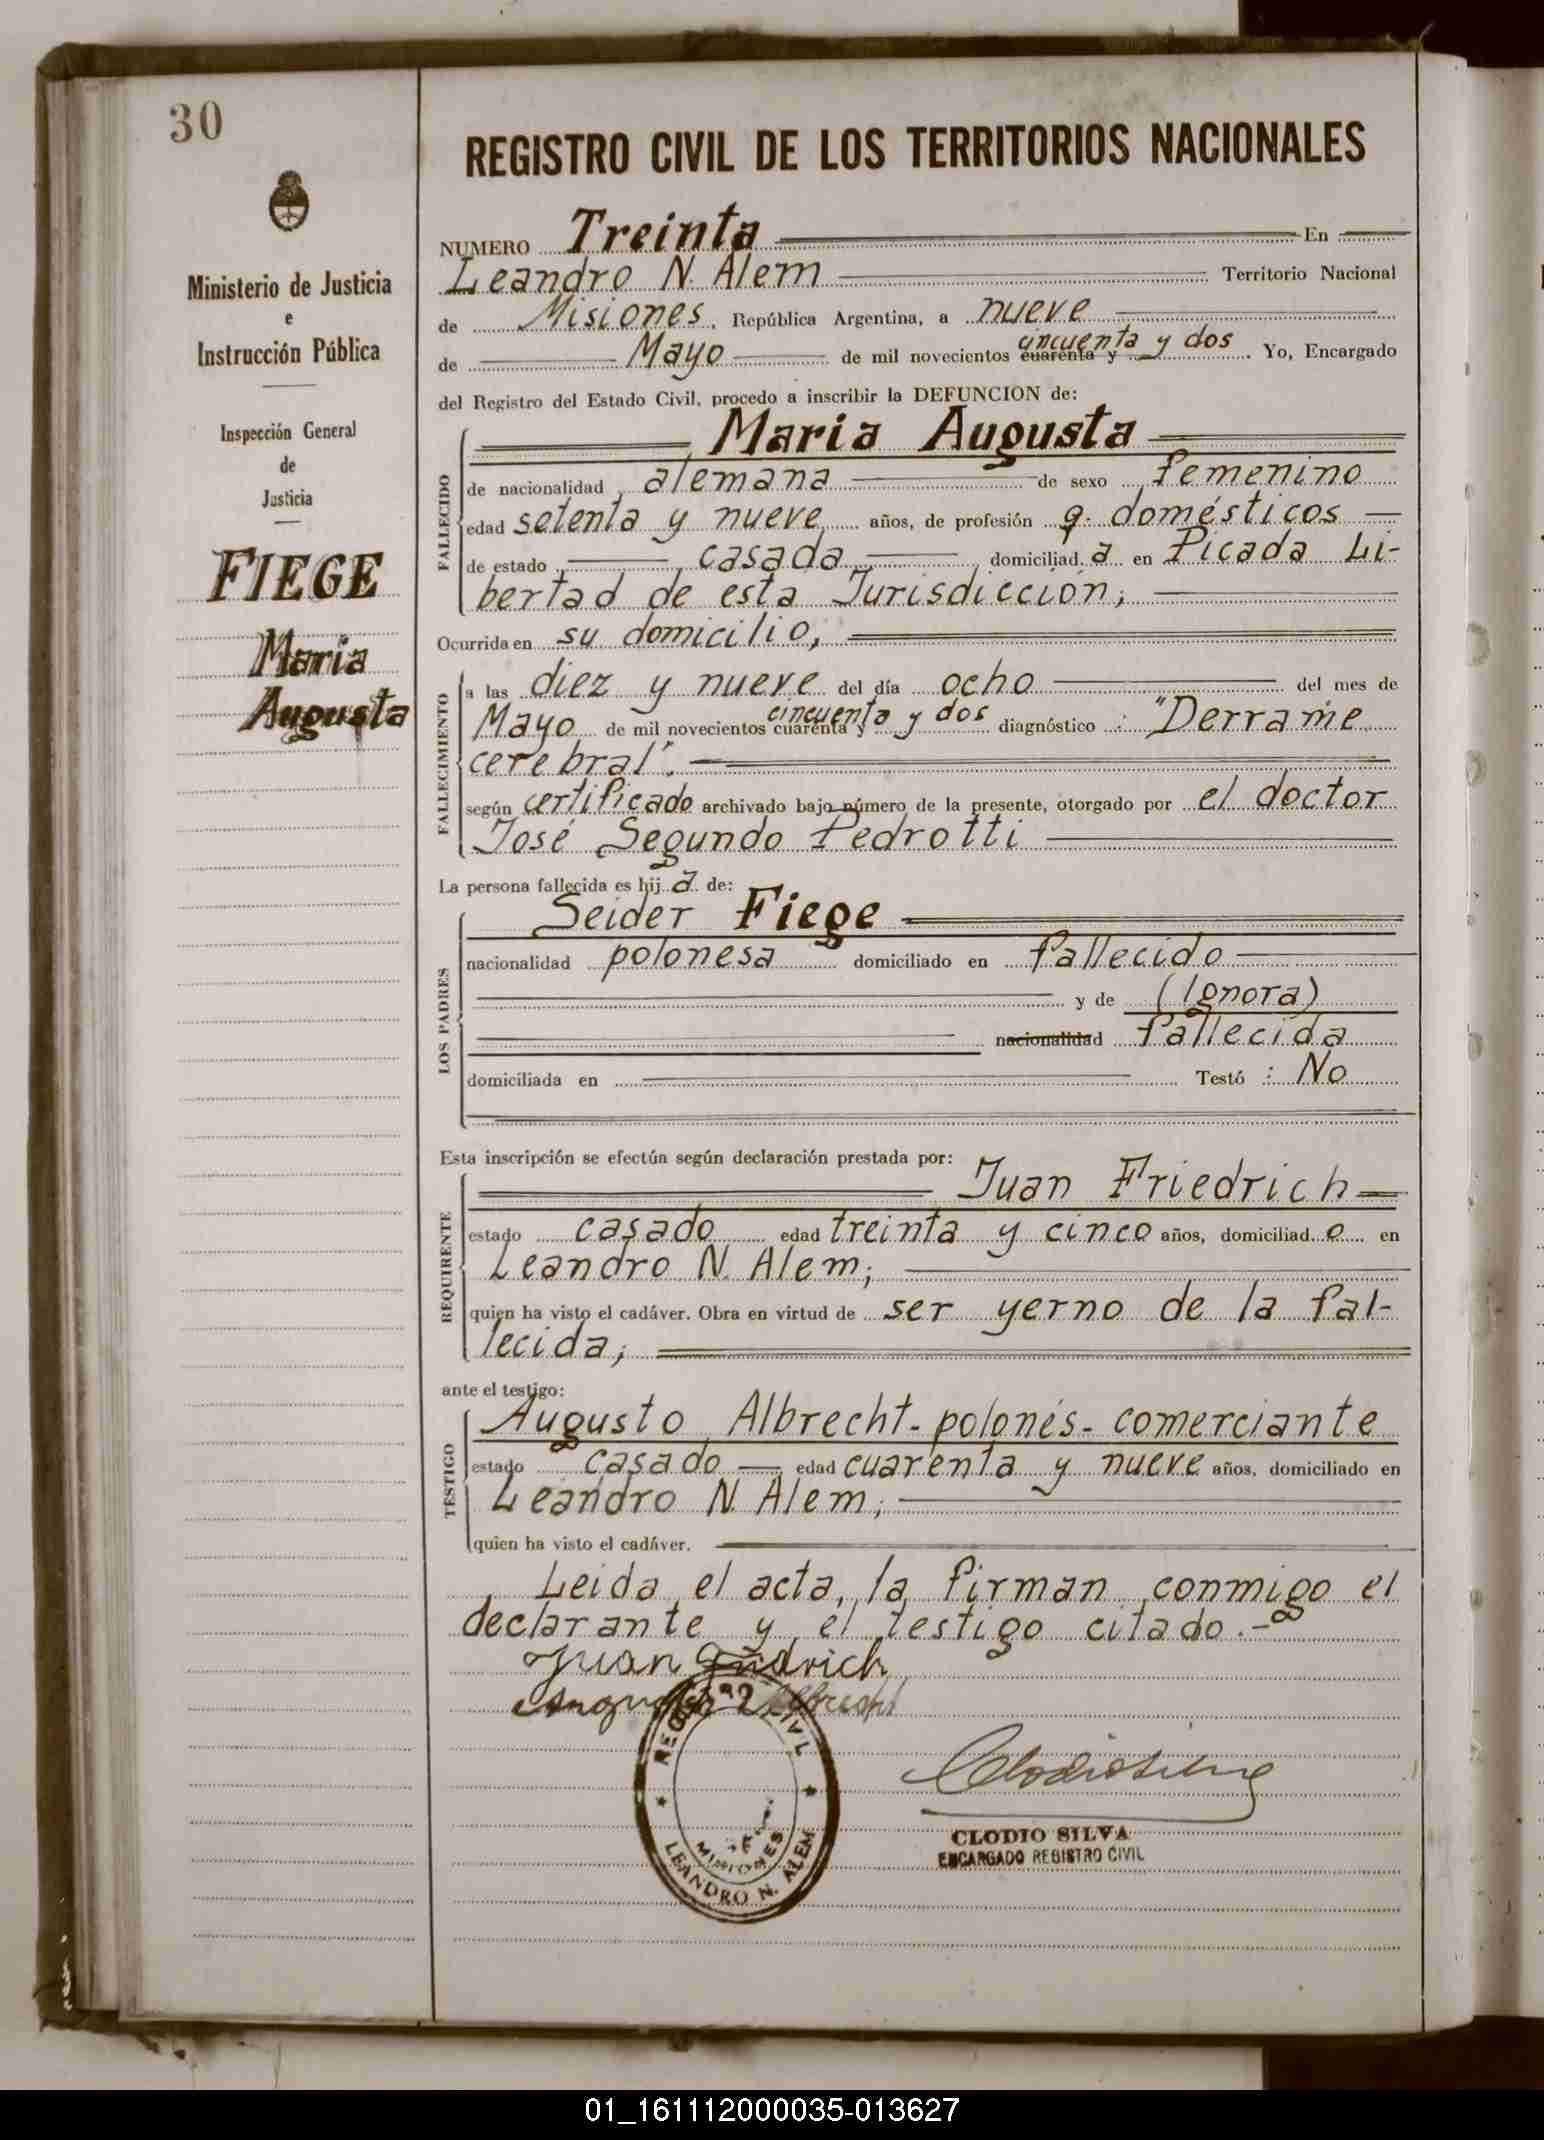 30
Ministerio de Justicia
e
Instrucción Pública
Inspección General
de
Justicia
FIEGE
Maria
Augusta
REGISTRO CIVIL DE LOS TERRITORIOS NACIONALES
NUMERO Treinta En
Leandro N. Alem Territorio Nacional
de Misiones, República Argentina, a nueve
de Mayo de mil novecientos cuarenta y cincuenta y dos. Yo, Encargado
del Registro del Estado Civil, procedo a inscribir la DEFUNCION de:
Maria Augusta
FALLECIDO
de nacionalidad alemana de sexo femenino
edad setenta y nueve años, de profesión q. domésticos
de estado casada domiciliad a en Picada Li-
bertad de esta Jurisdicción;
Ocurrida en su domicilio,
FALLECIMIENTO
a las diez y nueve del día ocho del mes de
Mayo de mil novecientos cuarenta y cincuenta y dos diagnóstico : "Derrame
cerebral".
según certificado archivado bajo número de la presente, otorgado por el doctor
José Segundo Pedrotti
La persona fallecida es hij a de:
LOS PADRES
Seider Fiege
nacionalidad polonesa domiciliado en fallecido
y de (Ignora)
nacionalidad fallecida
domiciliada en Testó : No
Esta inscripción se efectúa según declaración prestada por:
REQUIRENTE
Juan Friedrich
estado casado edad treinta y cinco años, domiciliad o en
Leandro N. Alem;
quien ha visto el cadáver. Obra en virtud de ser yerno de la fal-
lecida;
ante el testigo:
TESTIGO
Augusto Albrecht - polonés - comerciante
estado casado edad cuarenta y nueve años, domiciliado en
Leandro N. Alem;
quien ha visto el cadáver.
Leida el acta, la firman conmigo el
declarante y el testigo citado.-
Juan Fridrich
Augusto Albrecht
REGISTRO CIVIL
MISIONES
LEANDRO N. ALEM
Clodio Silva
CLODIO SILVA
ENCARGADO REGISTRO CIVIL
01_161112000035-013627